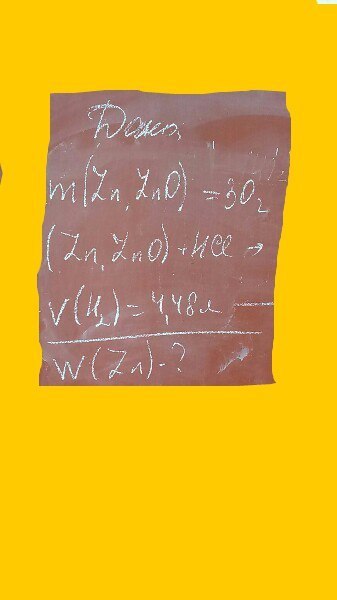 Дано:
m(Zn, ZnO) = 30г
(Zn, ZnO) + HCl →
V(H₂) = 4,48л
W(Zn) - ?